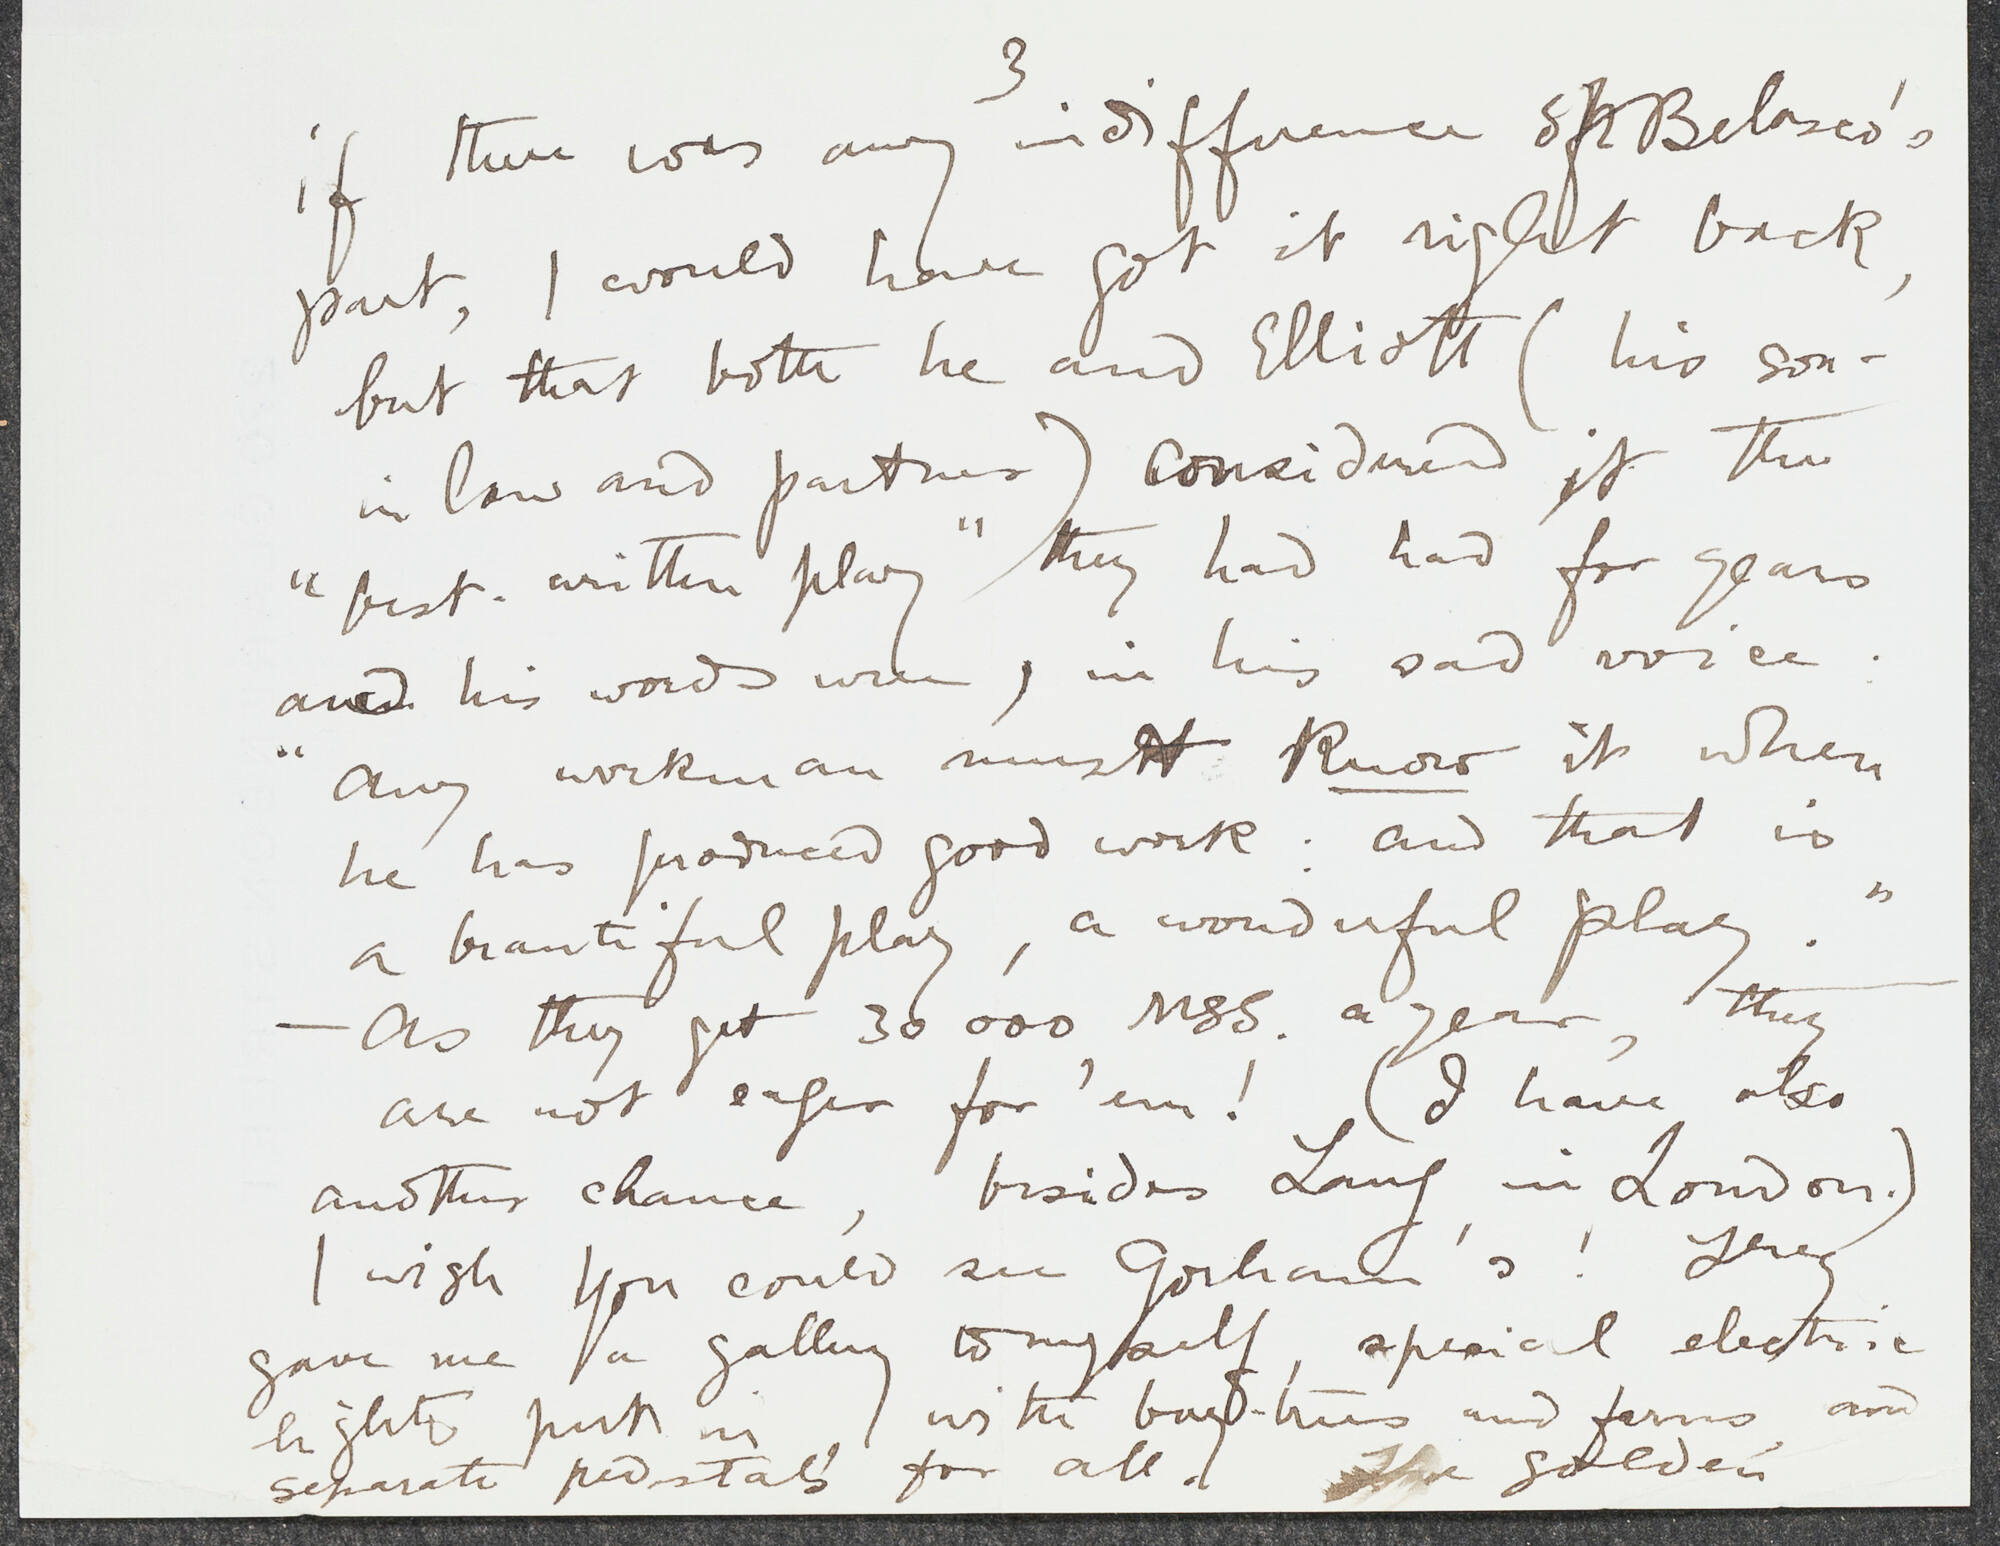 3
if there was any indifference on Belasco's
part, I would have got it right back,
but that both he and Elliott (his son-
in law and partner) considered it the
"best-written play" they had had for years
and his words were, in his sad voice:
"any workman must know it when
he has produced good work: and that is
a beautiful play, a wonderful play."
— As they get 30 000 MSS. a year, they
are not eager for 'em! (I have also
another chance, besides Lang, in London.)
I wish you could see Gorham's! They
gave me a gallery to myself, special electric
lights put in, with bay-trees and ferns and
separate pedestals for all. The golden